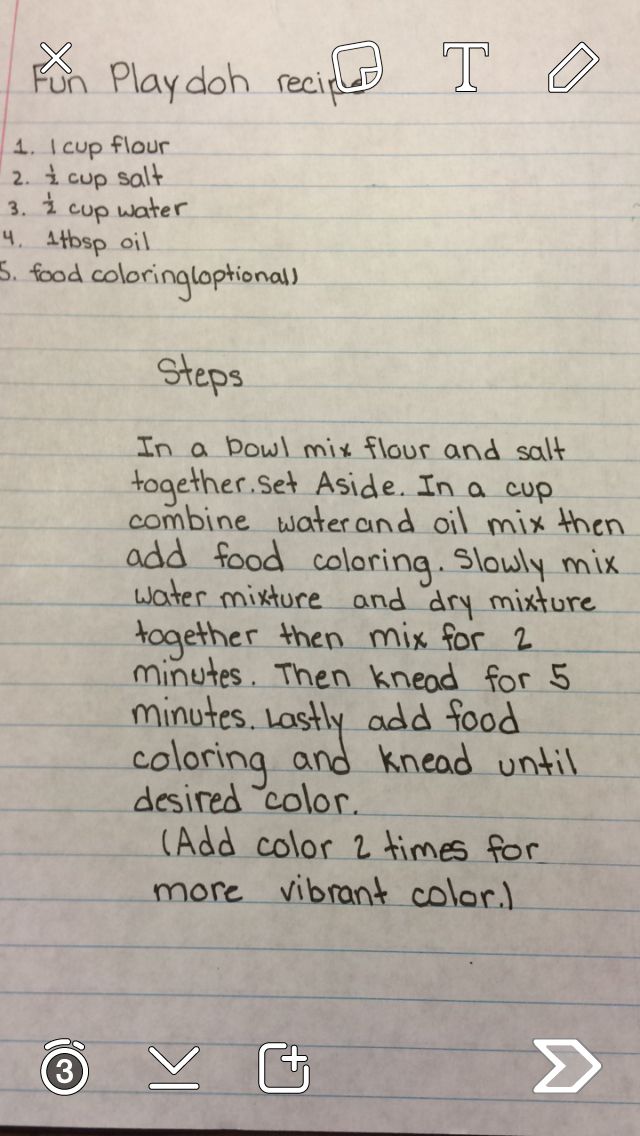 Fun Playdoh recipe
1. 1 cup flour
2. ½ cup salt
3. ½ cup water
4. 1tbsp oil
5. food coloring(optional)
Steps
In a bowl mix flour and salt
together. Set Aside. In a cup
combine water and oil mix then
add food coloring. Slowly mix
water mixture and dry mixture
together then mix for 2
minutes. Then knead for 5
minutes. Lastly add food
coloring and knead until
desired color.
(Add color 2 times for
more vibrant color.)
T
3